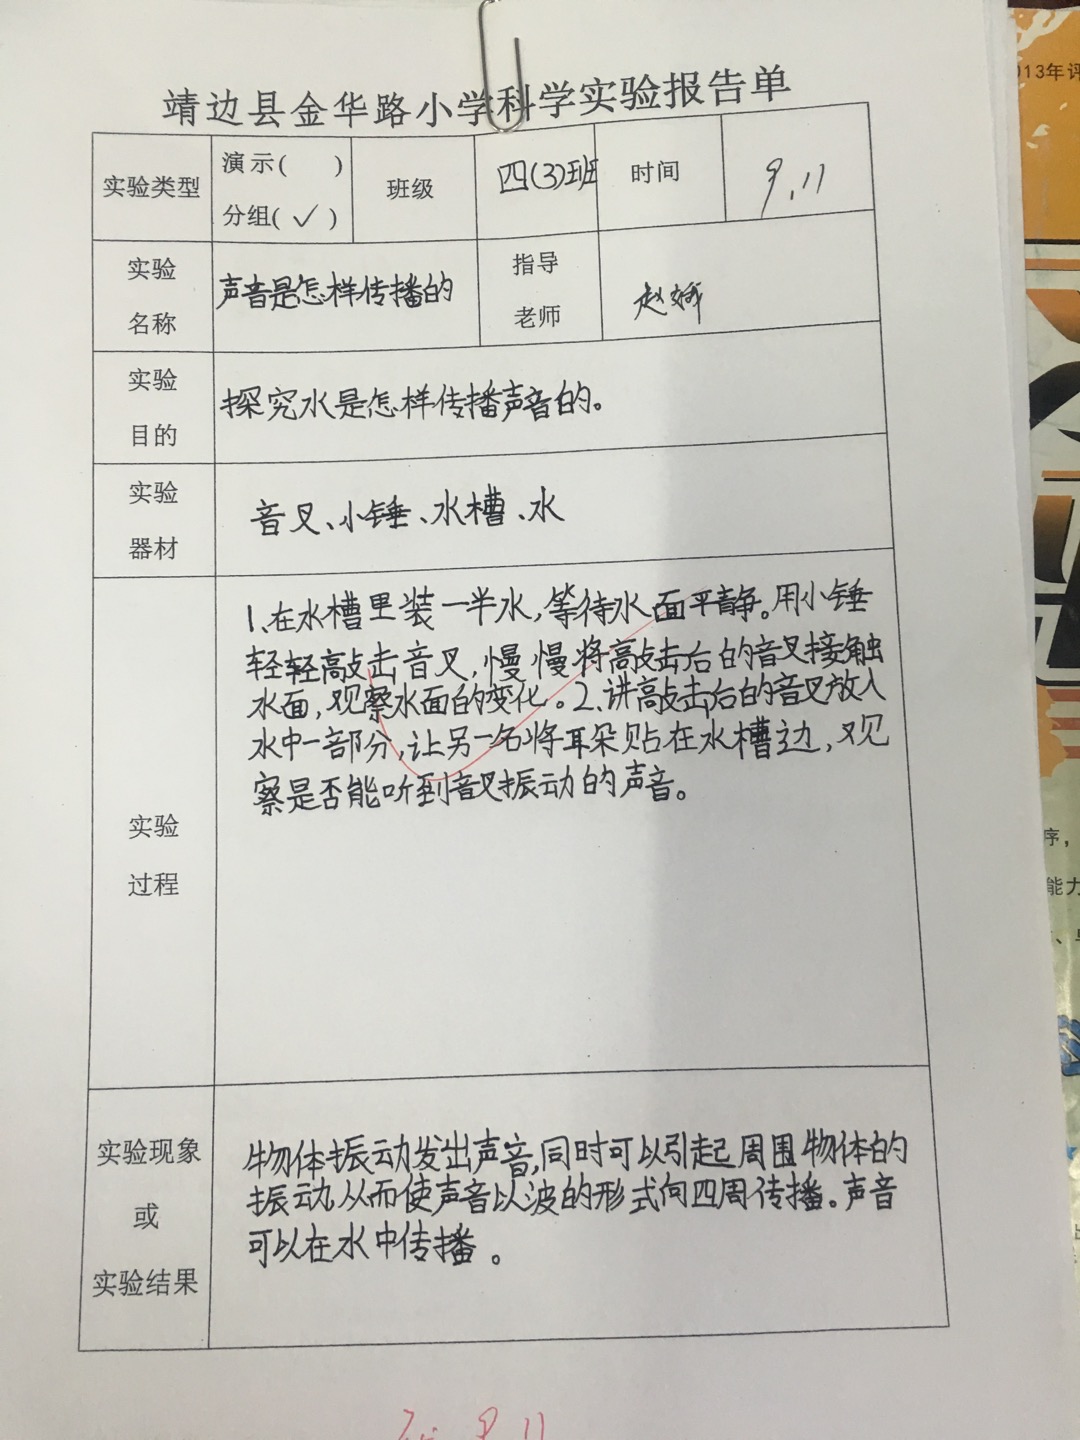 靖边县金华路小学科学实验报告单
实验类型
演示( )
分组(✓)
班级
四(3)班
时间
9.11
实验
名称
声音是怎样传播的
指导
老师
实验
目的
探究水是怎样传播声音的。
实验
器材
音叉、小锤、水槽、水
实验
过程
1、在水槽里装一半水,等待水面平静。用小锤
轻轻敲击音叉,慢慢将敲击后的音叉接触
水面,观察水面的变化。2、讲敲击后的音叉放入
水中一部分,让另一名将耳朵贴在水槽边,观
察是否能听到音叉振动的声音。
实验现象
或
实验结果
物体振动发出声音,同时可以引起周围物体的
振动,从而使声音以波的形式向四周传播。声音
可以在水中传播。
9.11
013年评
序,
能力